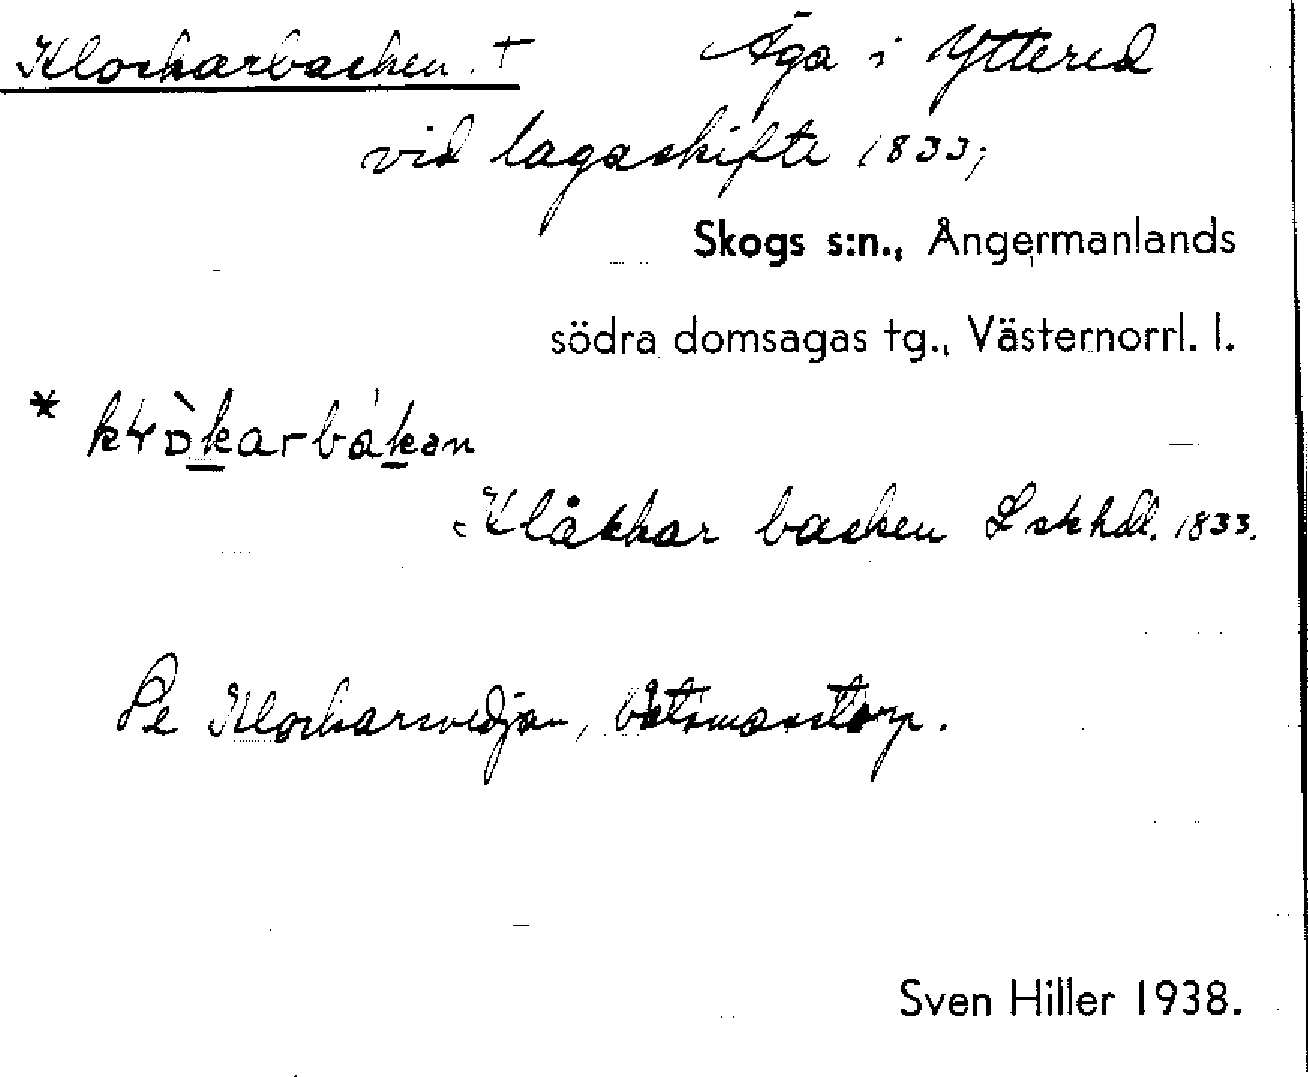 Klockarbacken. † Äga i Yttered
vid lagaskifte 1833;
Skogs s:n., Ångermanlands
södra domsagas tg., Västernorrl. l.
Klåckar backen Lskhdl. 1833.
Se Klockarsvedjan, Båtsmanstorp.
Sven Hiller 1938.